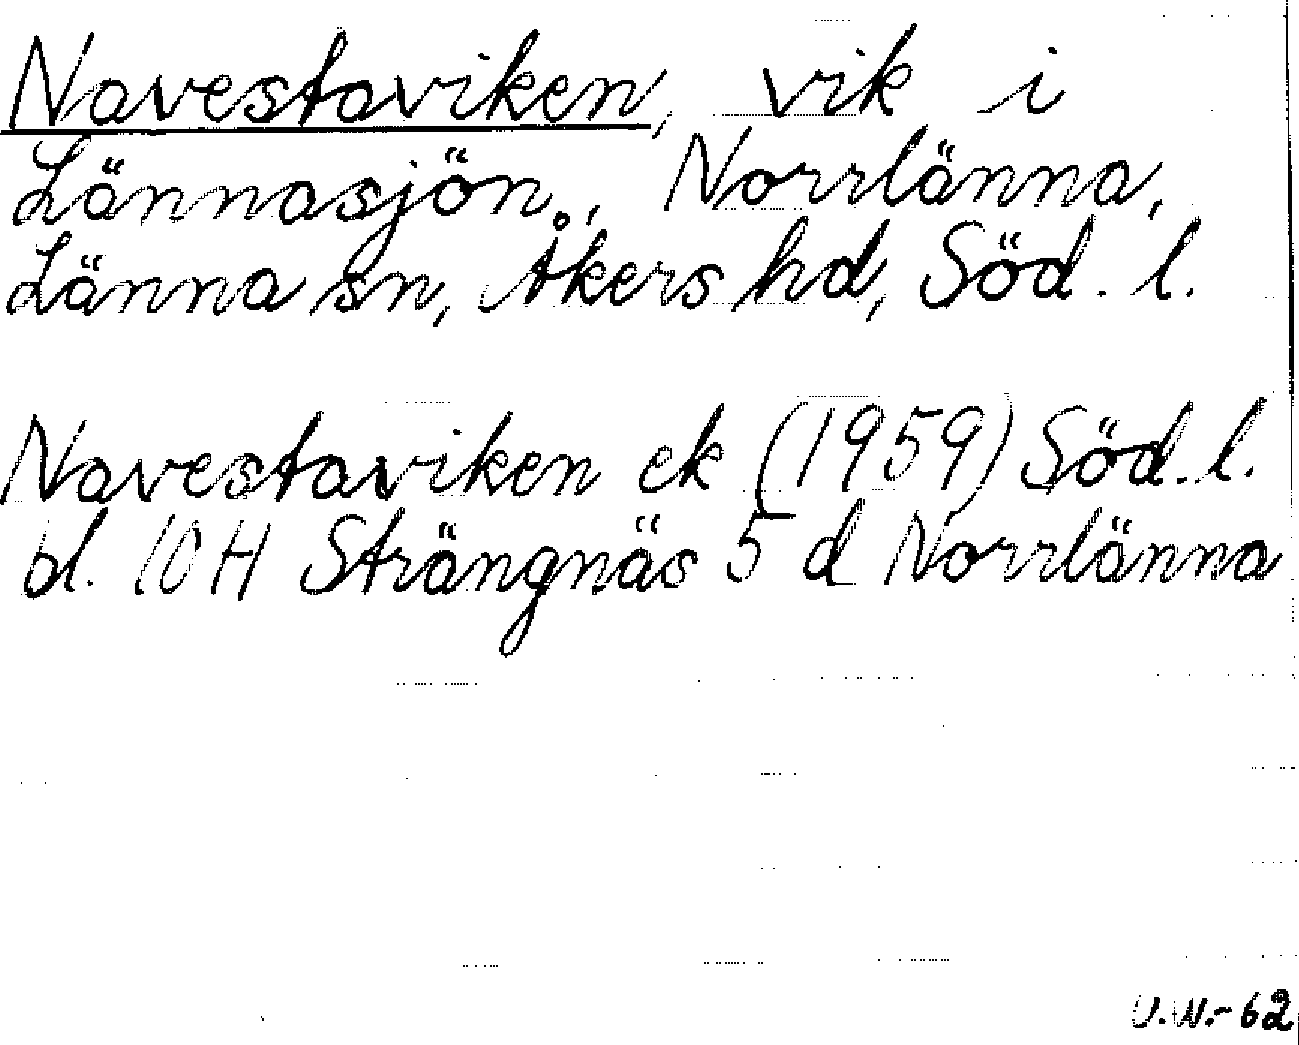 Navestaviken, vik i
Lännasjön, Norrlänna,
Länna sn, Åkers hd, Söd. l.
Navestaviken ek (1959) Söd. l.
bl. 10 H Strängnäs 5 d Norrlänna
U.W.-62